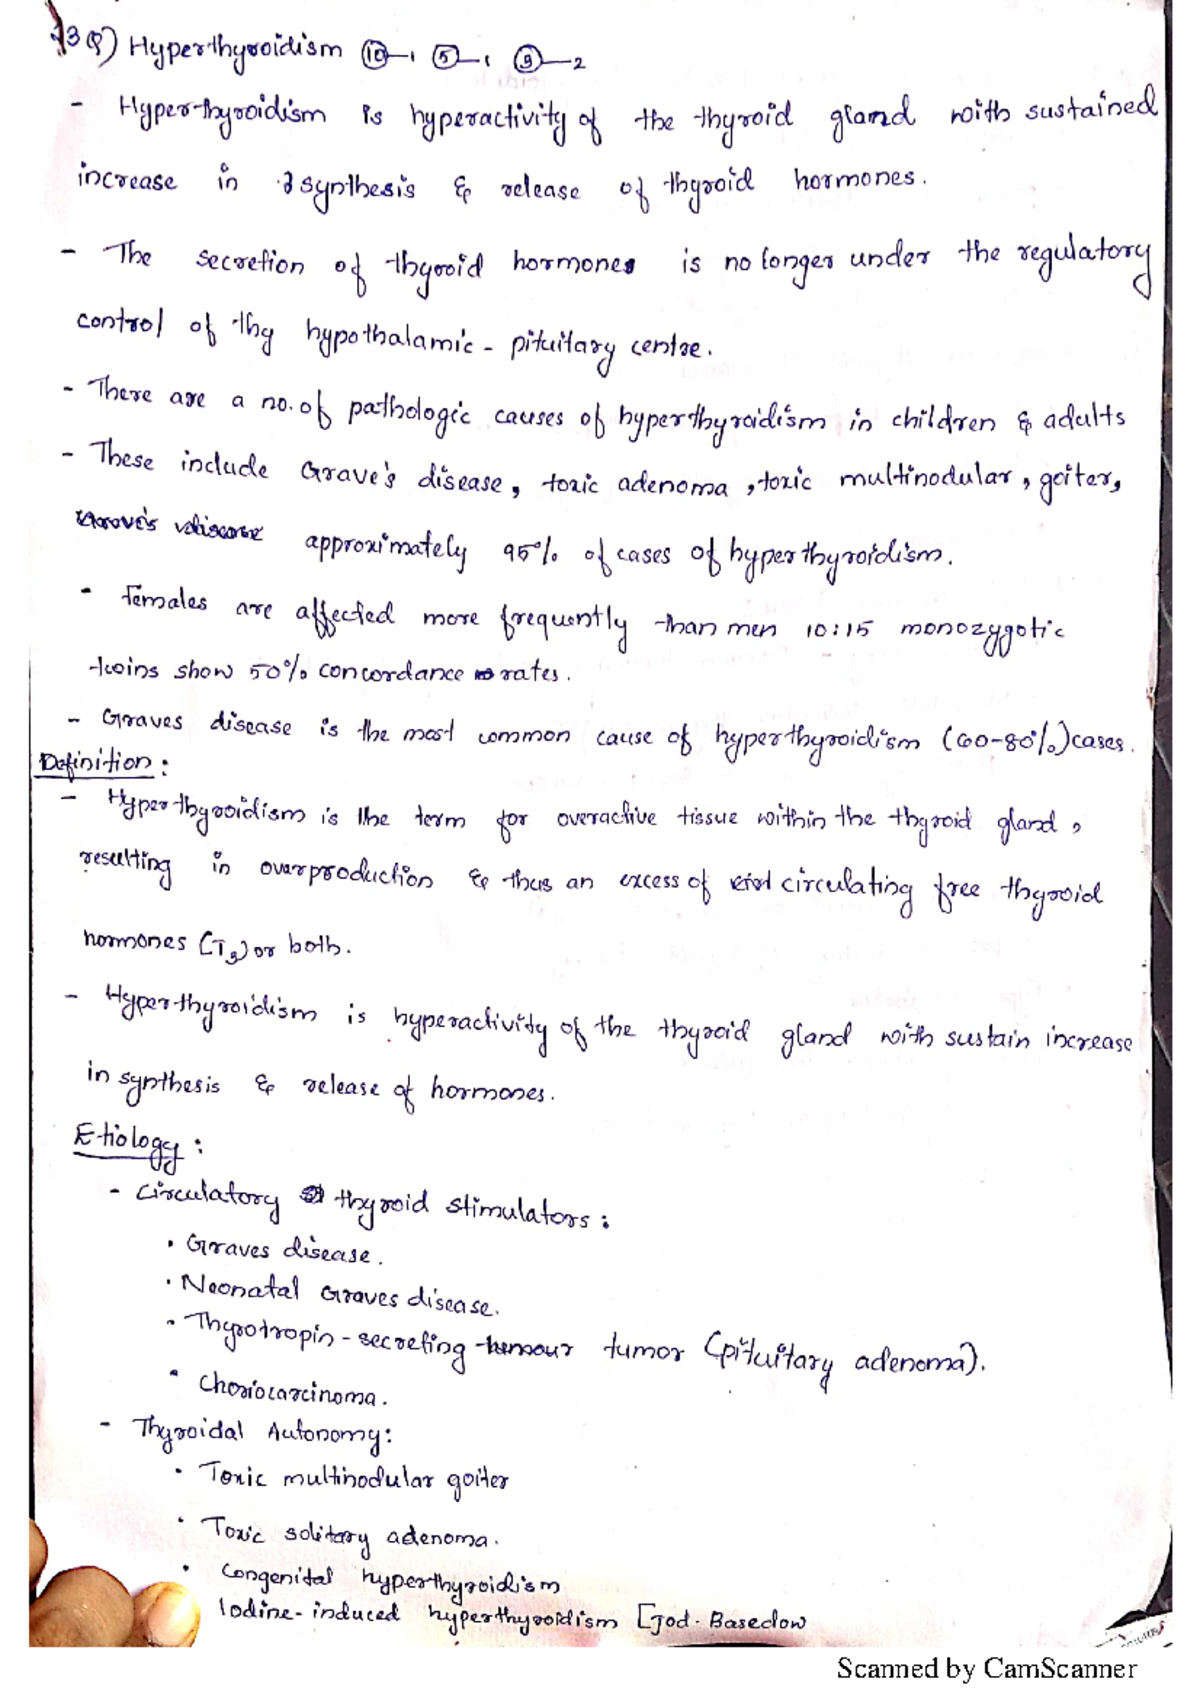 13 Q) Hyperthyroidism (10)-1 (5)-1 (3)-2
- Hyperthyroidism is hyperactivity of the thyroid gland with sustained
increase in synthesis & release of thyroid hormones.
- The secretion of thyroid hormones is no longer under the regulatory
control of thy hypothalamic - pituitary centre.
- There are a no. of pathologic causes of hyperthyroidism in children & adults
- These include Grave's disease, toxic adenoma, toxic multinodular, goiter,
approximately 95% of cases of hyperthyroidism.
- Females are affected more frequently than men 10:15 monozygotic
twins show 50% concordance rates.
- Graves disease is the most common cause of hyperthyroidism (60-80%) cases.
Definition:
- Hyperthyroidism is the term for overactive tissue within the thyroid gland,
resulting in overproduction & thus an excess of circulating free thyroid
hormones (T3) or both.
- Hyperthyroidism is hyperactivity of the thyroid gland with sustain increase
in synthesis & release of hormones.
Etiology:
- Circulatory thyroid stimulators:
• Graves disease.
• Neonatal Graves disease.
• Thyrotropin - secreting tumor (pituitary adenoma).
• Choriocarcinoma.
- Thyroidal Autonomy:
• Toxic multinodular goiter
• Toxic solitary adenoma.
• Congenital hyperthyroidism
Iodine-induced hyperthyroidism [Jod-Basedow
Scanned by CamScanner